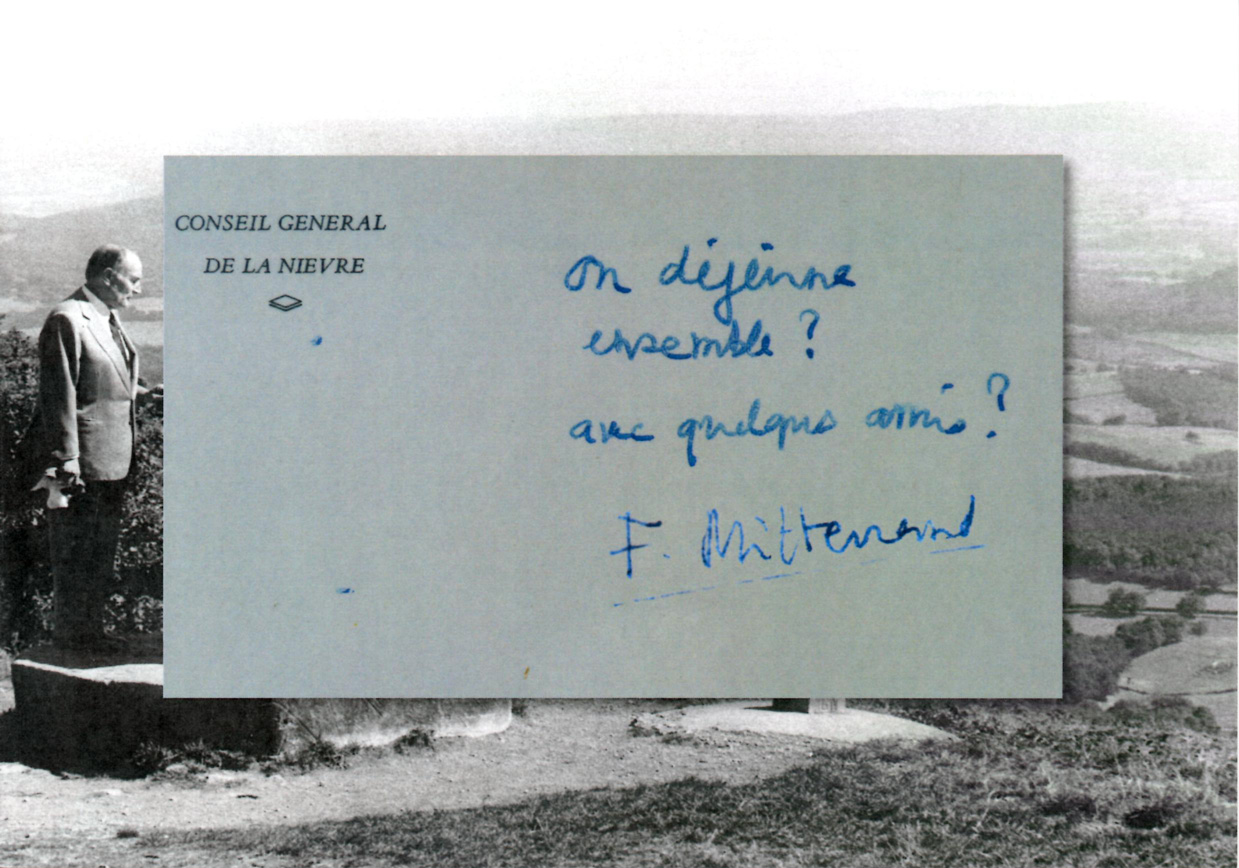 CONSEIL GENERAL
DE LA NIEVRE
on déjeûne
ensemble ?
avec quelques amis ?
F. Mitterrand